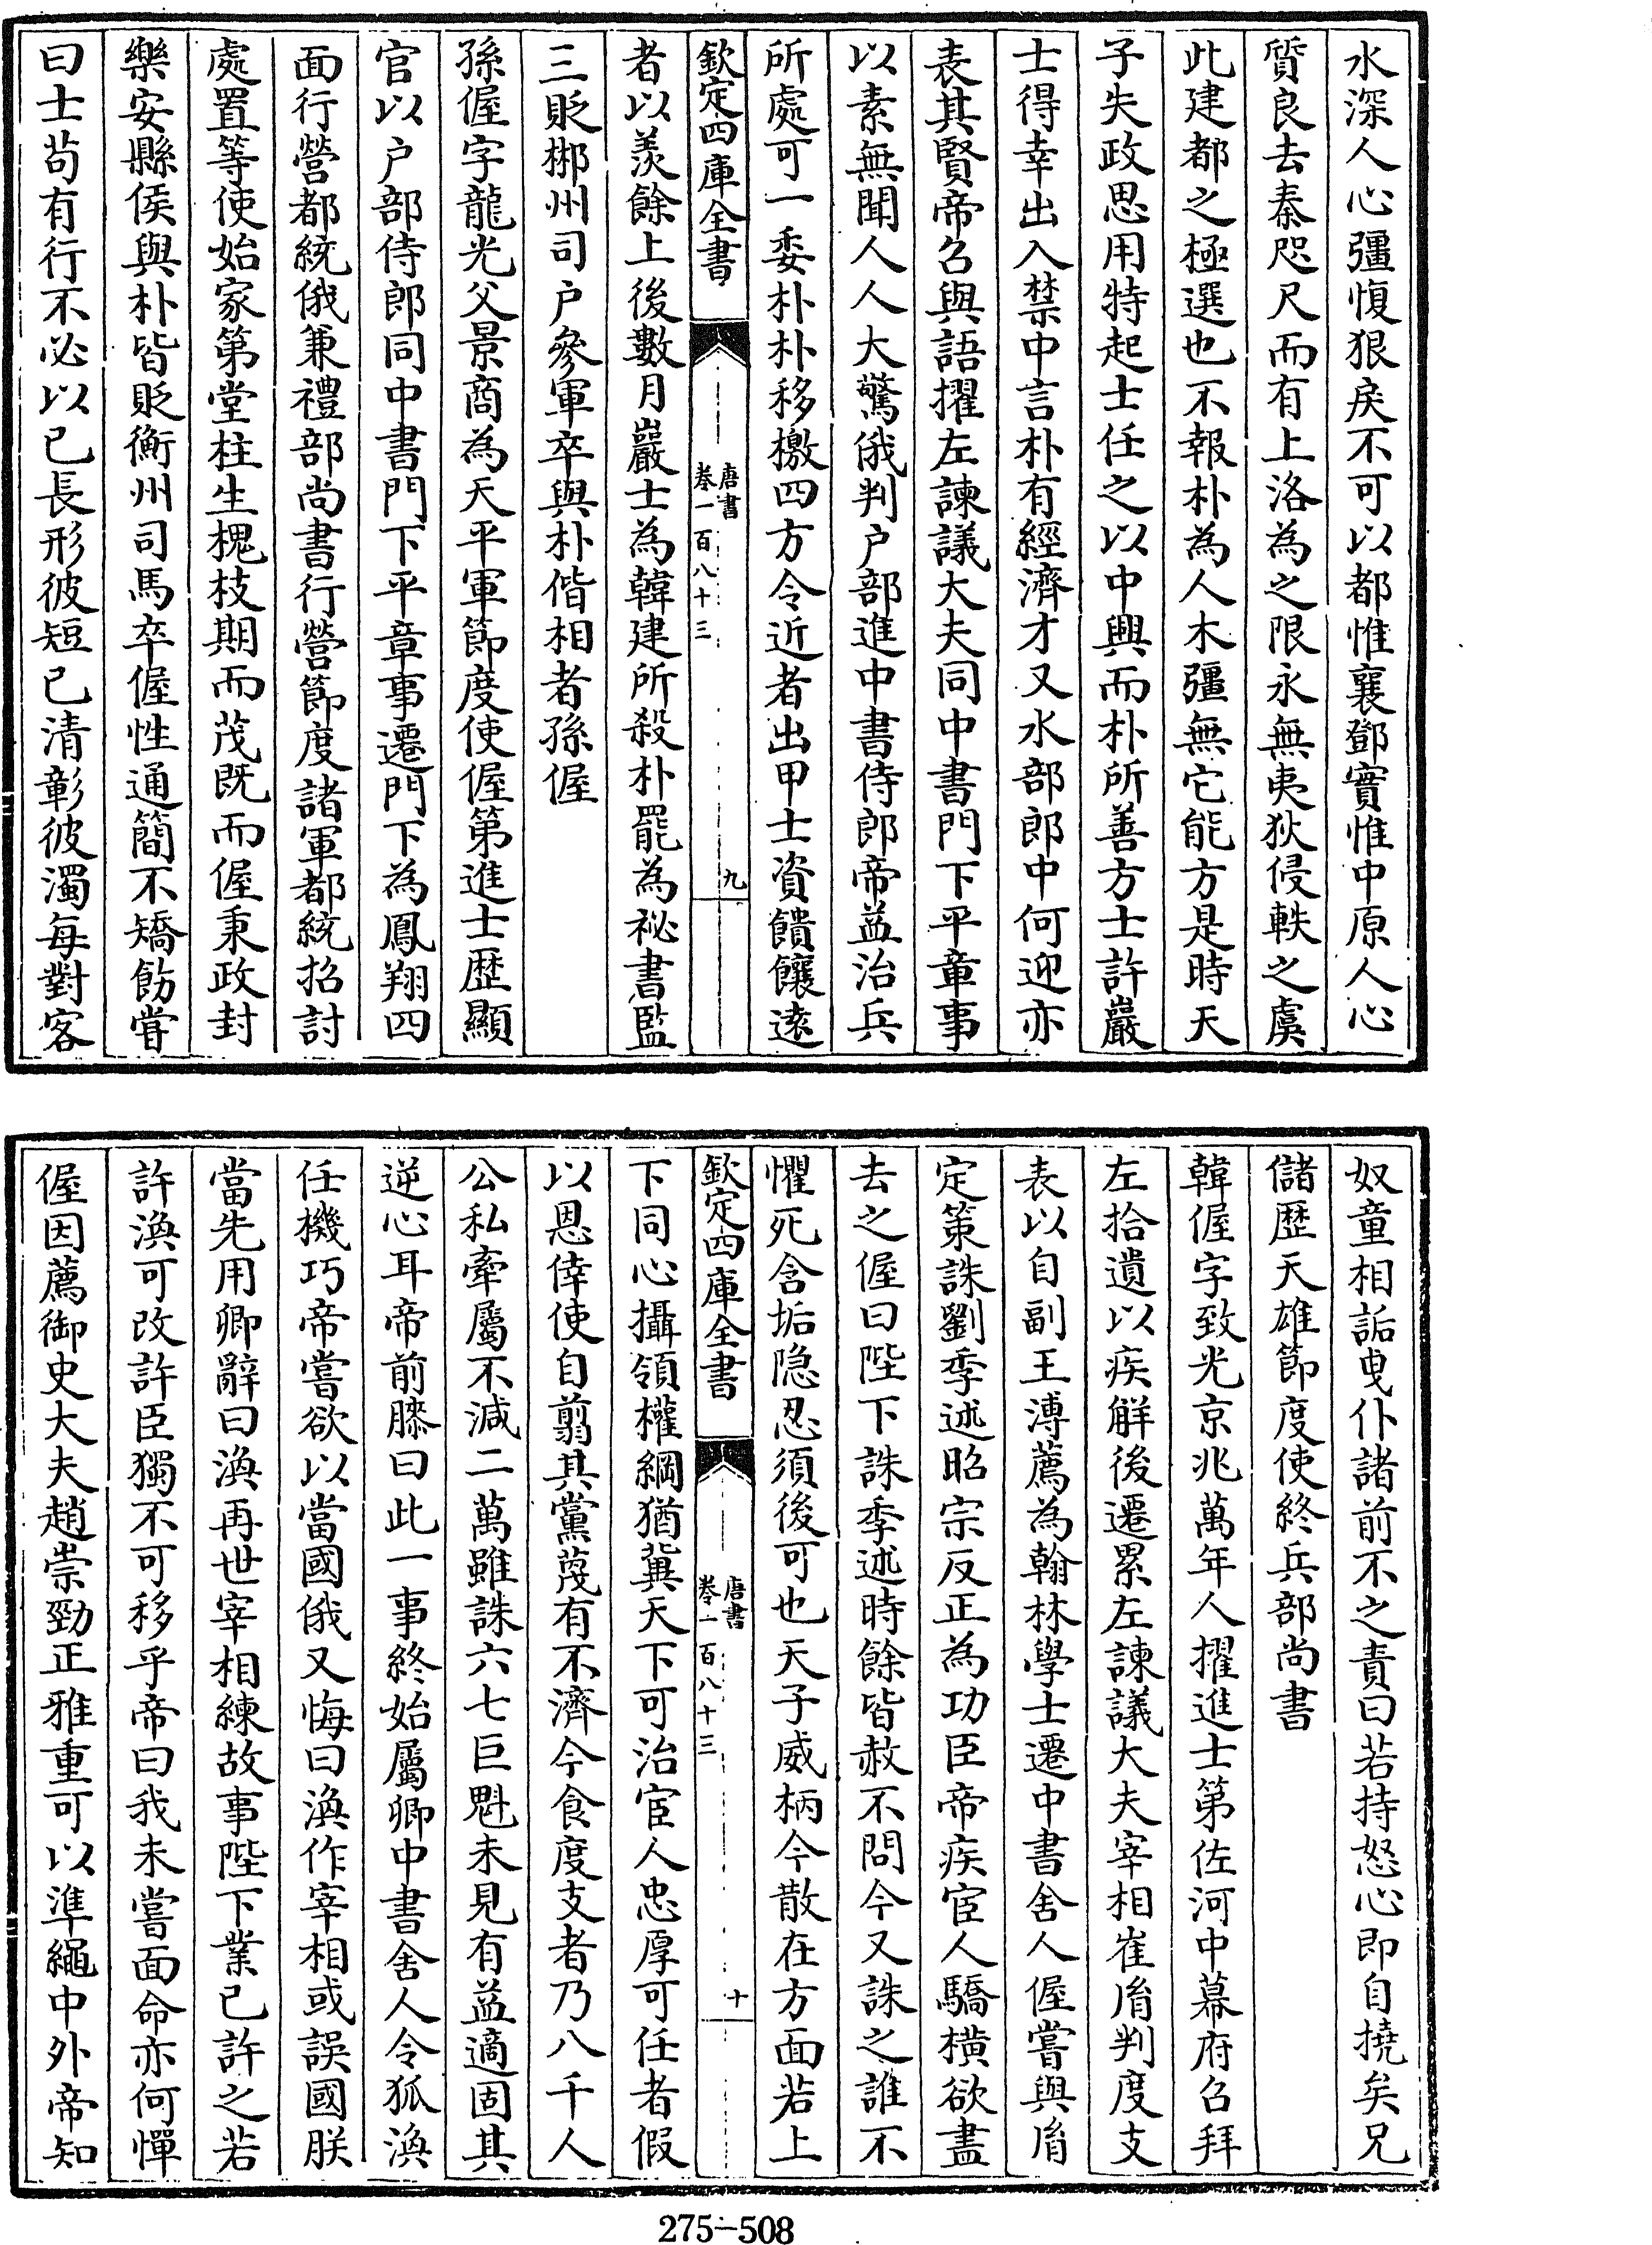 水深人心彊愎狠戾不可以都惟襄鄧實惟中原人心
質良去秦咫尺而有上洛為之限永無夷狄侵軼之虞
此建都之極選也不報朴為人木彊無它能方是時天
子失政思用特起士任之以中興而朴所善方士許巖
士得幸出入禁中言朴有經濟才又水部郎中何迎亦
表其賢帝召與語擢左諫議大夫同中書門下平章事
以素無聞人人大驚俄判户部進中書侍郎帝益治兵
所處可一委朴朴移檄四方令近者出甲士資饋饟遠
欽定四庫全書
唐書
卷一百八十三
九
者以羨餘上後數月巖士為韓建所殺朴罷為祕書監
三貶郴州司户參軍卒與朴偕相者孫偓
孫偓字龍光父景商為天平軍節度使偓第進士歴顯
官以户部侍郎同中書門下平章事遷門下為鳳翔四
面行營都統俄兼禮部尚書行營節度諸軍都統招討
處置等使始家第堂柱生槐枝期而茂既而偓秉政封
樂安縣侯與朴皆貶衡州司馬卒偓性通簡不矯飭嘗
曰士苟有行不必以已長形彼短已清彰彼濁每對客
奴童相詬曳仆諸前不之責曰若持怒心即自撓矣兄
儲歴天雄節度使終兵部尚書
韓偓字致光京兆萬年人擢進士第佐河中幕府召拜
左拾遺以疾解後遷累左諫議大夫宰相崔胤判度支
表以自副王溥薦為翰林學士遷中書舍人偓嘗與胤
定策誅劉季述昭宗反正為功臣帝疾宦人驕横欲盡
去之偓曰陛下誅季述時餘皆赦不問今又誅之誰不
懼死含垢隐忍須後可也天子威柄今散在方面若上
欽定四庫全書
唐書
卷一百八十三
十
下同心攝領權綱猶冀天下可治宦人忠厚可任者假
以恩倖使自翦其黨蔑有不濟今食度支者乃八千人
公私牽屬不減二萬雖誅六七巨魁未見有益適固其
逆心耳帝前膝曰此一事終始屬卿中書舍人令狐渙
任機巧帝嘗欲以當國俄又悔曰渙作宰相或誤國朕
當先用卿辭曰渙再世宰相練故事陛下業已許之若
許渙可改許臣獨不可移乎帝曰我未嘗面命亦何憚
偓因薦御史大夫趙崇勁正雅重可以準繩中外帝知
275-508